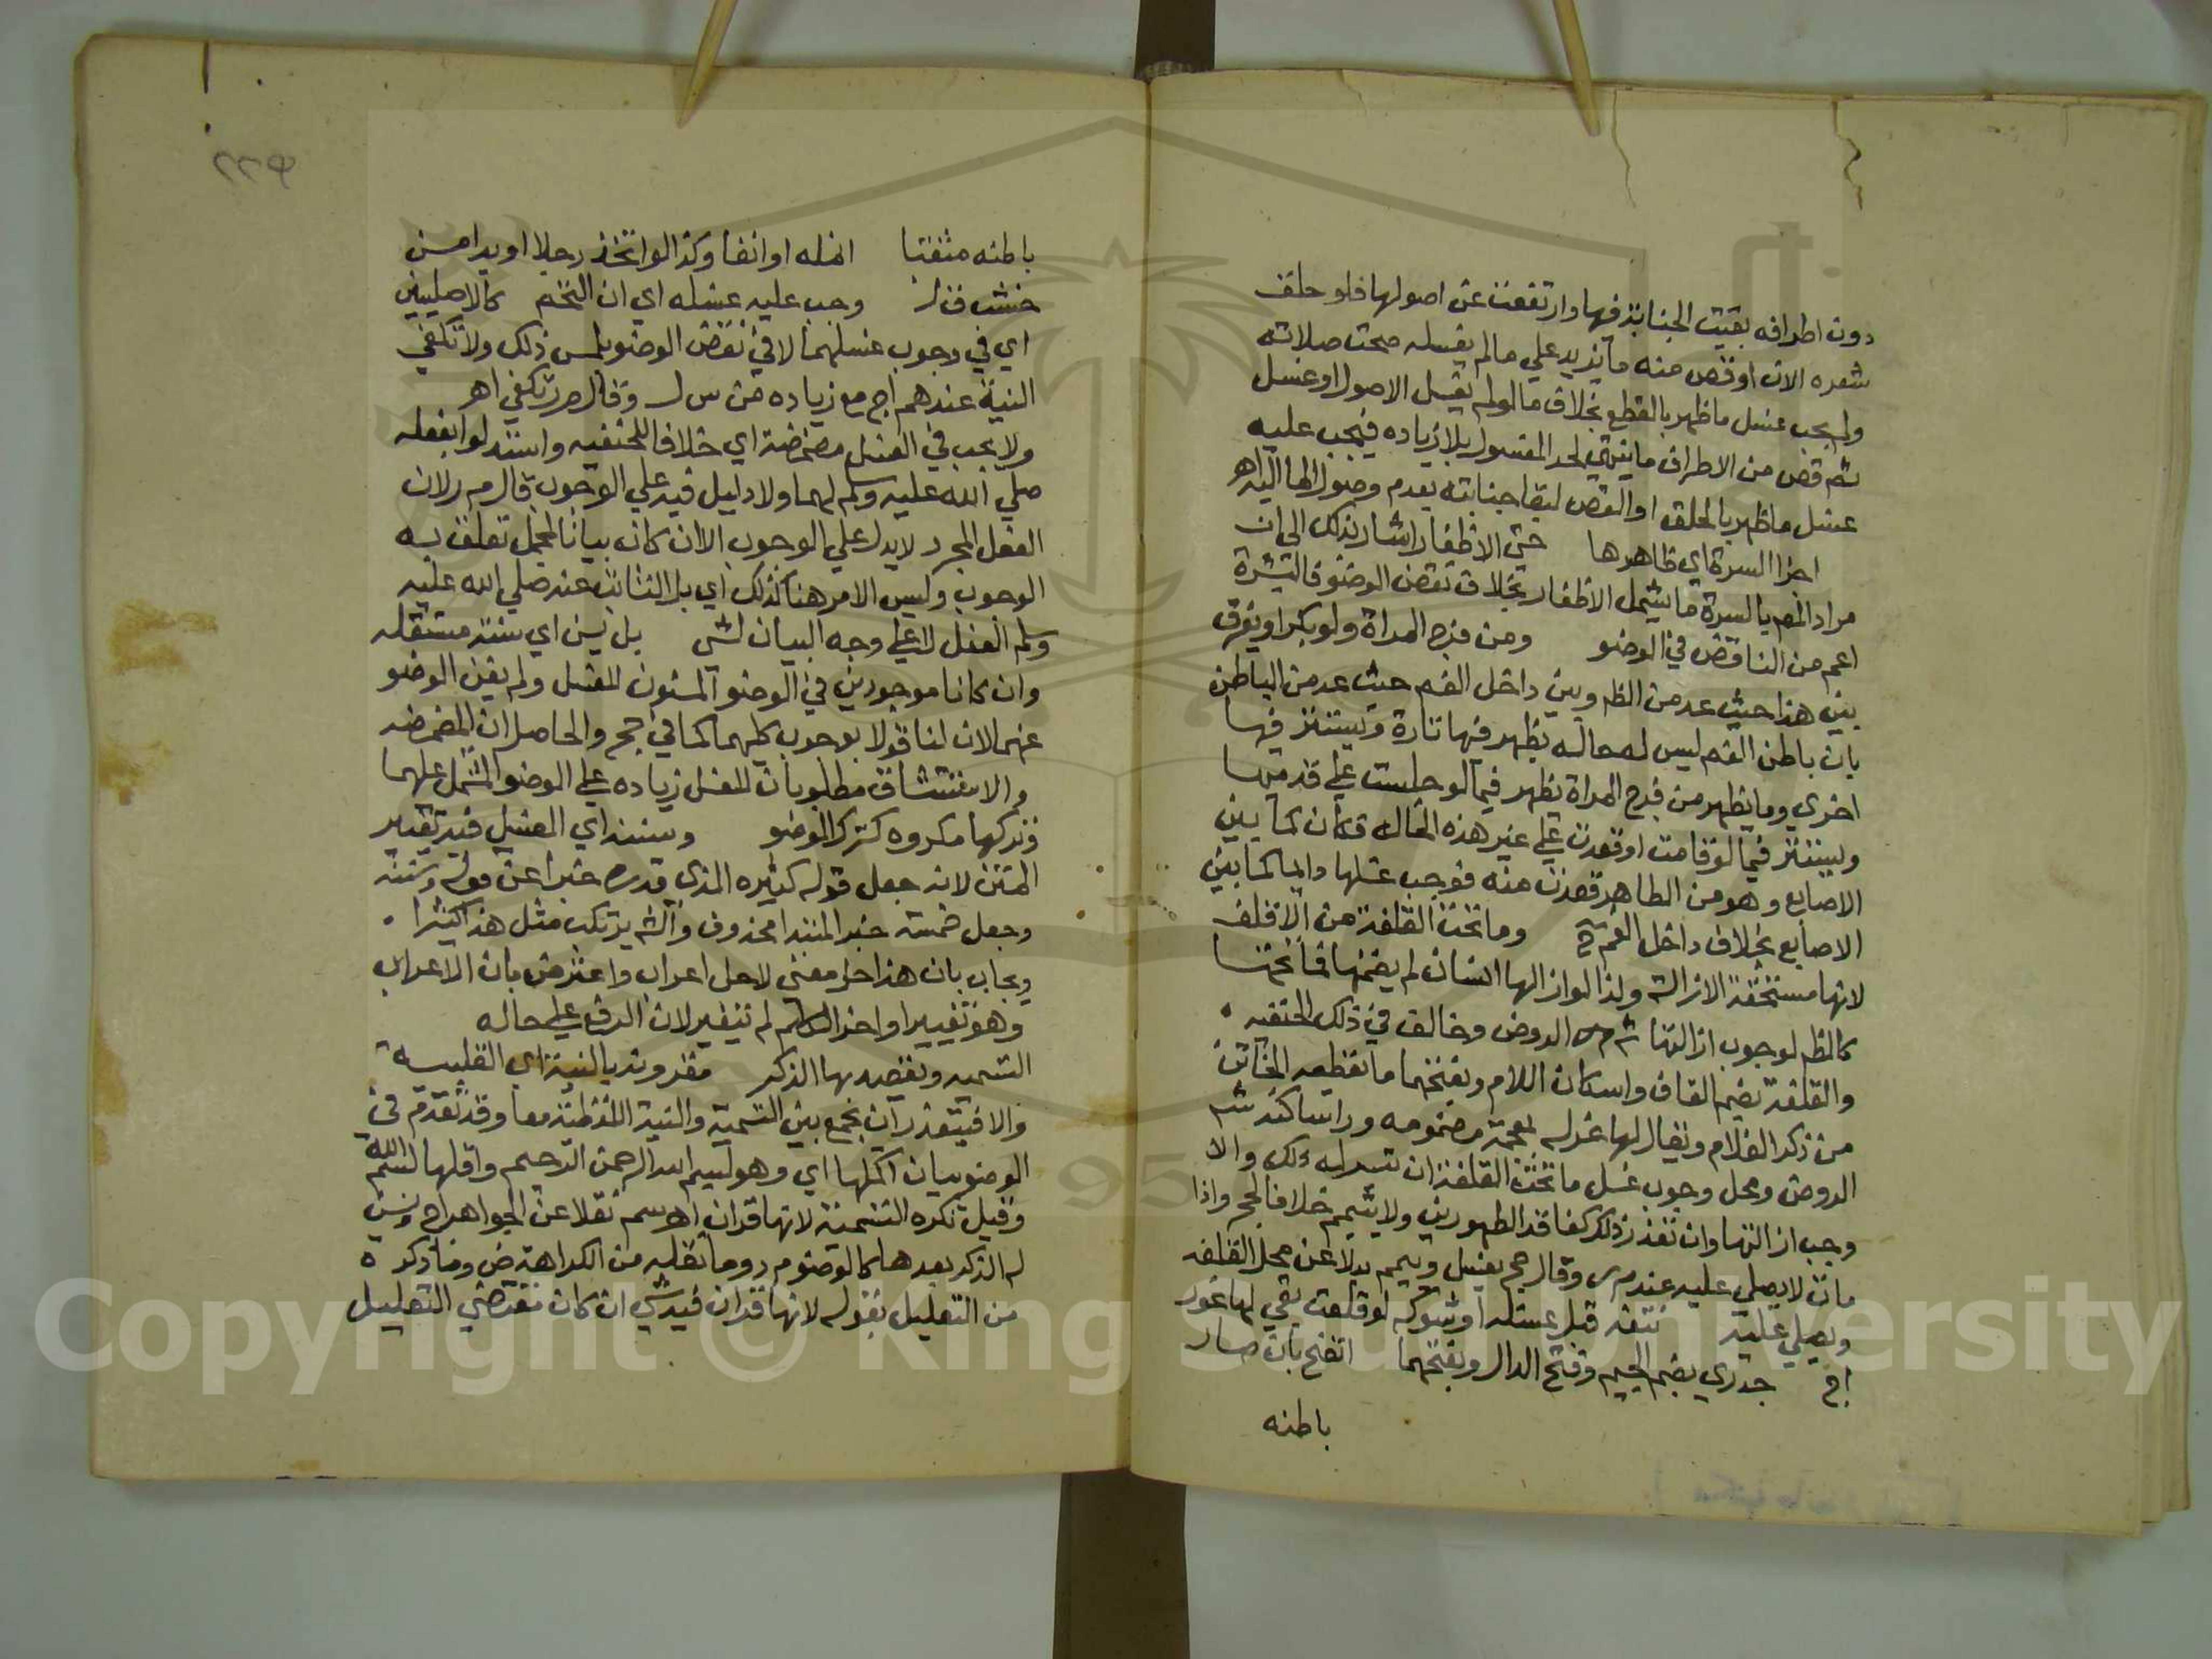 دون اطرافه بقيت الجنابة فيها وارتفعت عن اصولها فلو حلق
شعره الان او قص منه ما يزيد علي مالم يغسله صحت صلاته
ولم يجب غسل ما ظهر بالقطع بخلاف ما لو لم يغسل الاصول او غسل
ثم قص من الاطراف ما ينتهي لحد المغسول بلا زياده فيجب عليه
غسل ما ظهر بالحلق او القص لبقا جنابته بعدم وصول الما اليه اهـ
اجزا البشرة اي ظاهرها حتي الاظفار اشار بذلك الي ان
مراد المص بالبشرة ما يشمل الاظفار بخلاف نقض الوضو فالبشرة
اعم من الناقض في الوضو ومن فرج المراة ولو بكرا ويفرق
بين هذا حيث عد من الظ وبين داخل الفم حيث عد من الباطن
بان باطن الفم ليس له حالة يظهر فيها تارة ويستتر فيها
اخري وما يظهر من فرج المراة يظهر فيما لو جلست علي قدميها
ويستتر فيما لو قامت او قعدت علي غير هذه الحالة فكان كما بين
الاصابع وهو من الظاهر فعدت منه فوجب غسلها دايما كما بين
الاصابع بخلاف داخل الفم وما تحت القلفة من الاقلف
لانها مستحقة الازالة ولذا لو ازالها انسان لم يضمنها فما تحتها
كالظ لوجوب ازالتها الروض وخالف في ذلك الحنفيه
والقلفة بضم القاف واسكان اللام وبفتحها ما يقطعه الخاتن
من ذكر الغلام ويقال لها غرله بمعجمة مضمومه ورا ساكنة
الروض ومحل وجوب غسل ما تحت القلفة ان تيسر له ذلك والا
وجب ازالتها وان تعذر ذلك كفاقد الطهورين ولا ييمم خلافا لحج واذا
مات لا يصلي عليه عند م ر وقال حج يغسل وييمم بدلا عن محل القلفة
ويصلي عليه نتفه قبل غسله او شوكه لو قلعت بقي لها غور
اج جدري بضم الجيم وفتح الدال وبفتحهما انفتح بان صار
باطنه
٢٢٩
باطنه منفتحا انمله او انفا وكذا لو اتخذ رجلا او يدا من
خشب وجب عليه غسله اي ان التحم كالاصليين
اي في وجوب غسلهما لا في نقض الوضو بلمس ذلك ولا تكفي
النية عندهم اج مع زياده من س ل وقال م ر تكفي اهـ
ولا يجب في الغسل مضمضة اي خلافا للحنفيه واستدلوا بفعله
صلي الله عليه وسلم لهما ولا دليل فيه علي الوجوب قال م ر لان
الفعل المجرد لا يدل علي الوجوب الا ان كان بيانا لمجمل تعلق به
الوجوب وليس الامر هنا كذلك اي بل الثابت عنه صلي الله عليه
وسلم الفعل لا علي وجه البيان لشي بل يسن اي سنة مستقله
وان كانا موجودين في الوضو المسنون للغسل ولم يغن الوضو
عنهما لان لنا قولا بوجوب كليهما كما في حج والحاصل ان المضمضه
والاستنشاق مطلوبان للغسل زياده علي الوضو المشتمل عليهما
فتركهما مكروه كترك الوضو وسننه اي الغسل فيه تغيير
المتن لانه جعل قوله كثيره الذي قدره خبرا عن قوله وسننه
وجعل خمسة خبر المبتدا محذوف والش يرتكب مثل هذا كثيرا
ويجاب بان هذا حل معني لا حل اعراب واعترض بان الاعراب
وهو تغيير اواخر الكلم لم يتغير لان الرفع علي حاله
التسميه ويقصد بها الذكر مقرونه بالنية اي القلبيه
والا فيتعذر ان يجمع بين التسميه والنية اللفظية معا وقد تقدم في
الوضو بيان اكملها اي وهو بسم الله الرحمن الرحيم واقلها بسم الله
وقيل تكره التسمية لانها قران اهـ سم نقلا عن الجواهر اج ويسن
له الذكر بعدها كالوضو م ر وما نقله من الكراهة ض وما ذكره
من التعليل بقوله لانها قران فيه شي ان كان مقتضي التعليل